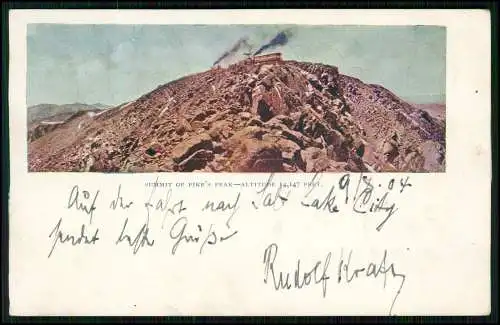 SUMMIT OF PIKE'S PEAK—ALTITUDE 14,147 FEET.
9/8. 04
Auf der Fahrt nach Salt Lake City
sendet beste Grüße
Rudolf